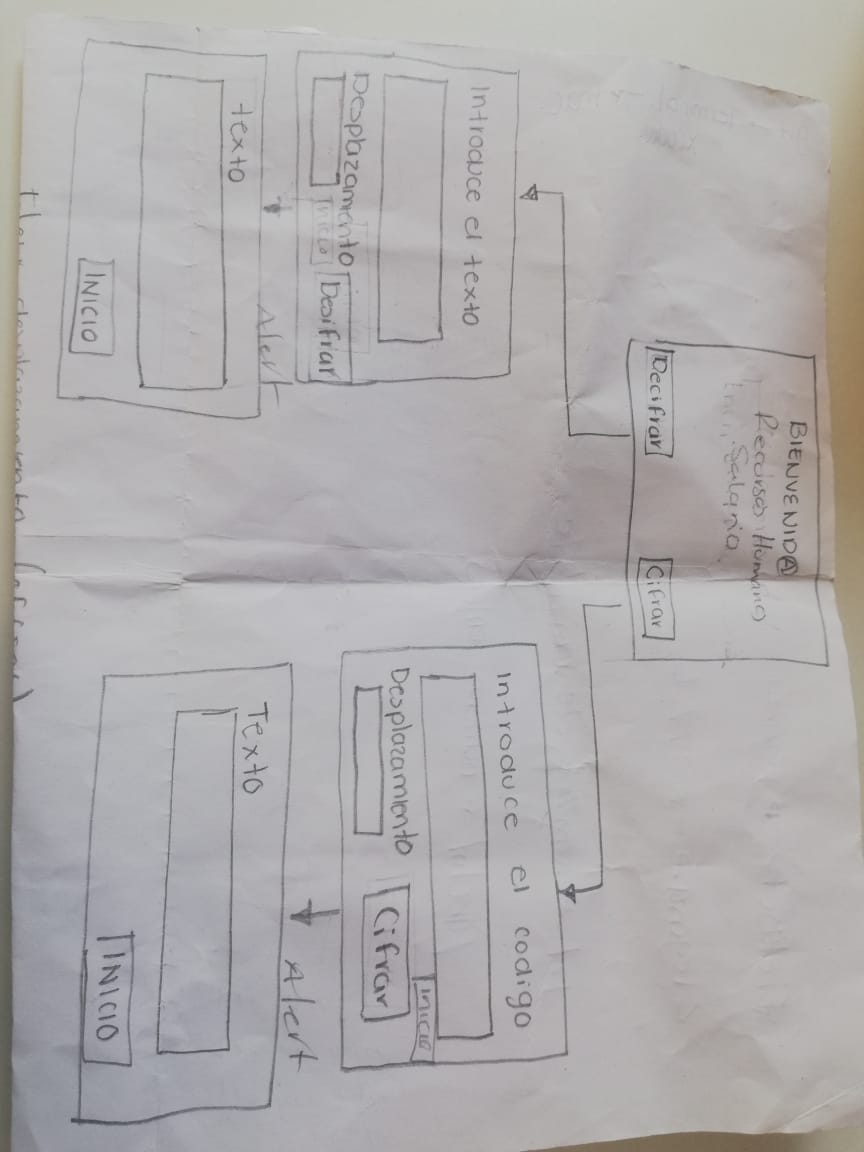 BIENVENID@
Recursos Humanos
Salario
Decifrar
Cifrar
Introduce el texto
Desplazamiento
Inicio
Desifrar
Alert
texto
INICIO
Introduce el codigo
Inicio
Desplazamiento
Cifrar
Alert
Texto
INICIO